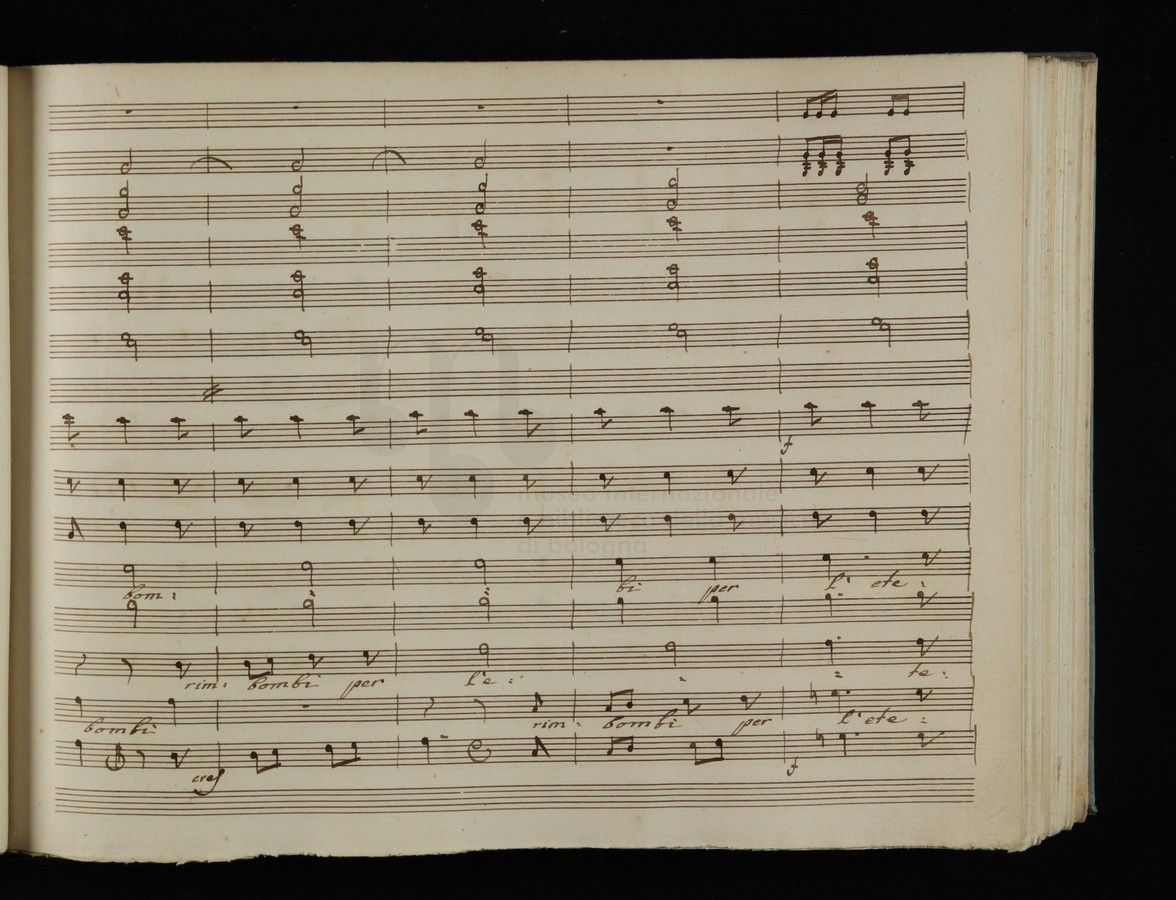 f
museo internazionale
di bologna
bom: bi per l' ete:
rim: bombi per l'e: = te:
bombi rim: bombi per l'ete:
cresf
f